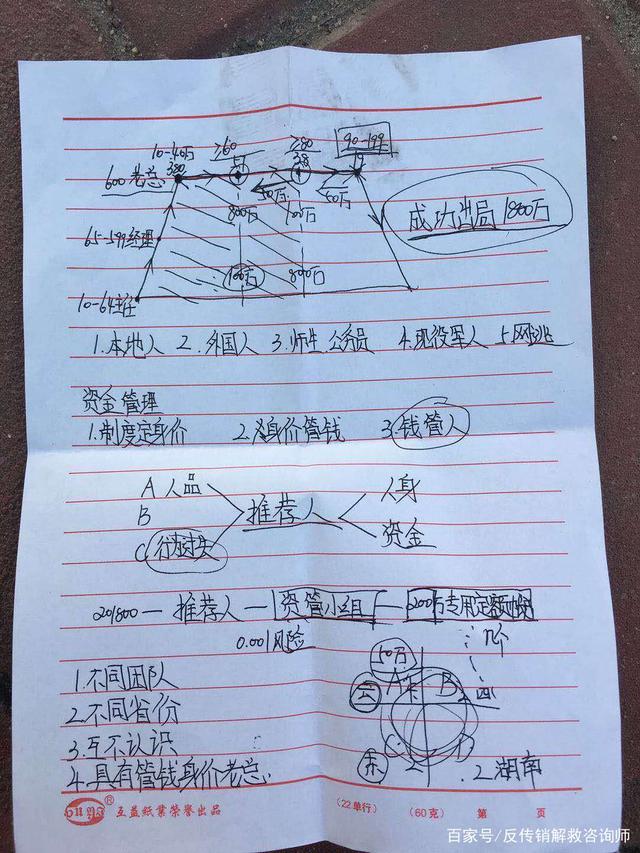 10-40万 ≥60 ≥80 90-199
380 38 19
600老总
50万 50万
800万 100万
成功出局1800万
65-599经理
100万 800万
10-64主任
1.本地人 2.外国人 3.师生.公务员 4.现役军人 5.网逃
资金管理
1.制度定身价 2.身价管钱 3.钱管人
A人品 人身
B 推荐人
C 资金
201800—推荐人—资管小组—200万专用定额
0.001风险
1.不同团队 50万 A B
2.不同省份 云 四
3.互不认识
4.具有管钱身价老总 2湖南
互益紙業榮譽出品 (22单行) (60克) 第 页
百家号/反传销解救咨询师